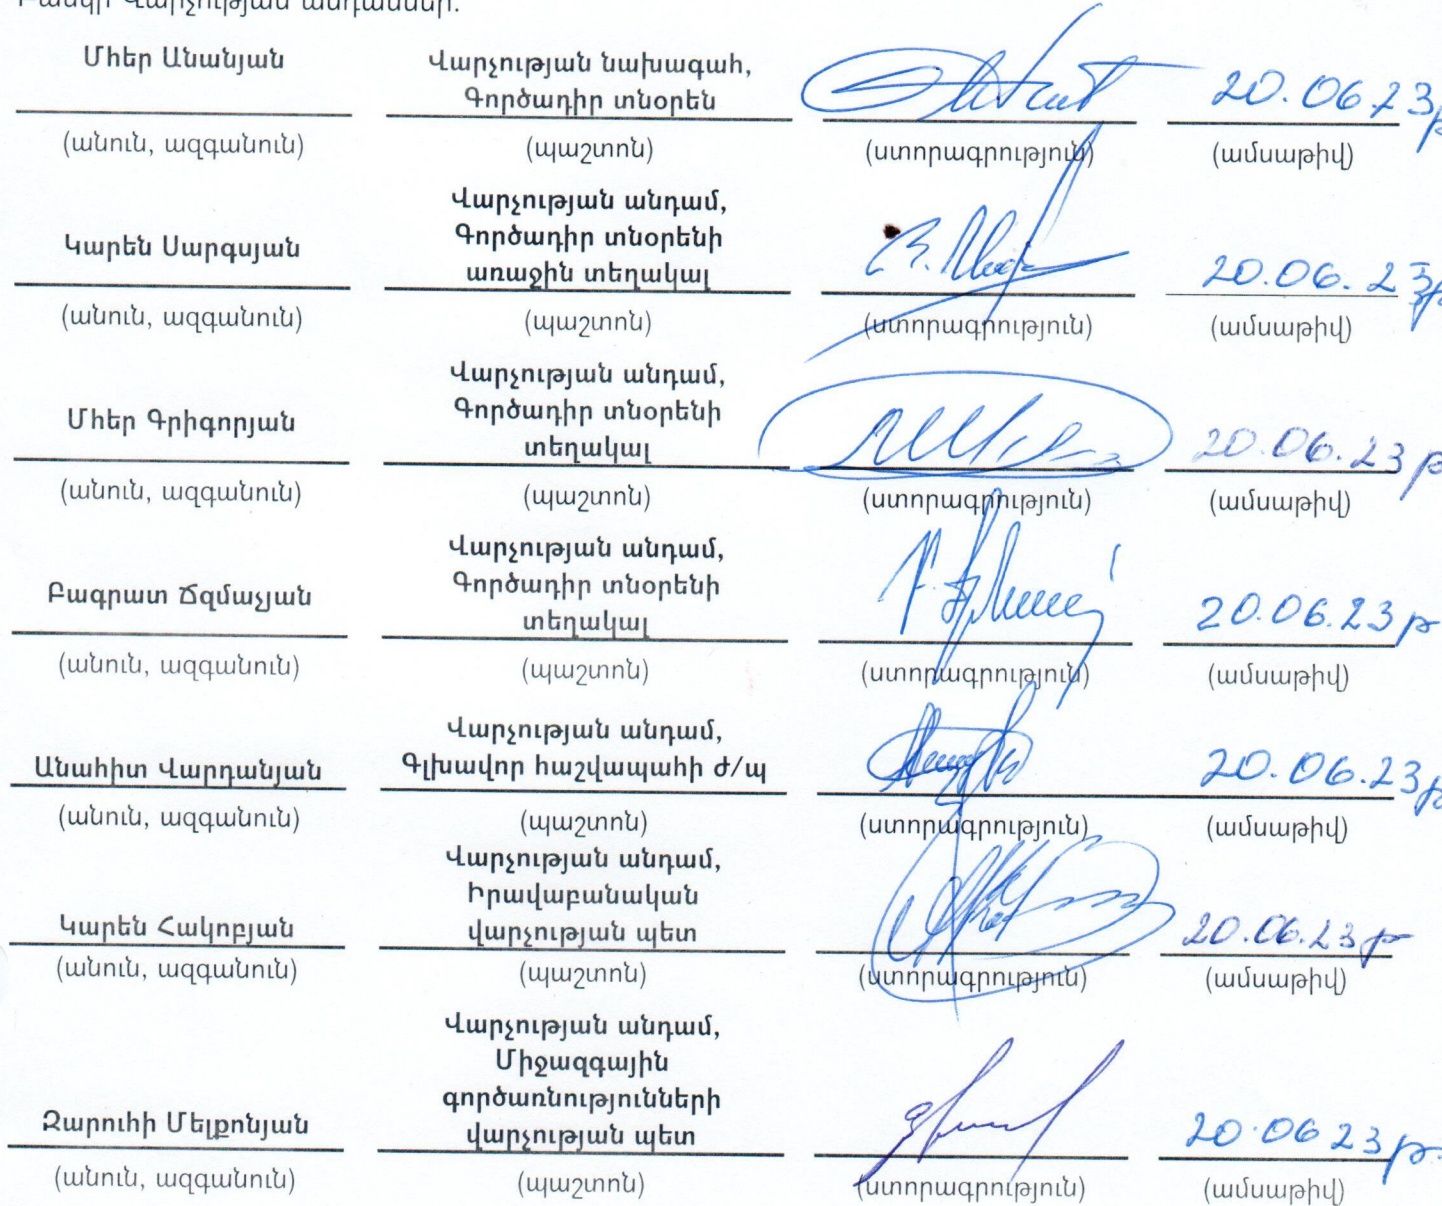 Բանկի Վարչության անդամներ.
Մհեր Անանյան
Վարչության նախագահ,
Գործադիր տնօրեն
20.06.23թ
(անուն, ազգանուն) (պաշտոն) (ստորագրություն) (ամսաթիվ)
Կարեն Սարգսյան
Վարչության անդամ,
Գործադիր տնօրենի
առաջին տեղակալ
20.06.23թ
(անուն, ազգանուն) (պաշտոն) (ստորագրություն) (ամսաթիվ)
Մհեր Գրիգորյան
Վարչության անդամ,
Գործադիր տնօրենի
տեղակալ
20.06.23թ
(անուն, ազգանուն) (պաշտոն) (ստորագրություն) (ամսաթիվ)
Բագրատ Ճզմաչյան
Վարչության անդամ,
Գործադիր տնօրենի
տեղակալ
20.06.23թ
(անուն, ազգանուն) (պաշտոն) (ստորագրություն) (ամսաթիվ)
Անահիտ Վարդանյան
Վարչության անդամ,
Գլխավոր հաշվապահի ժ/պ
20.06.23թ
(անուն, ազգանուն) (պաշտոն) (ստորագրություն) (ամսաթիվ)
Կարեն Հակոբյան
Վարչության անդամ,
Իրավաբանական
վարչության պետ
20.06.23թ
(անուն, ազգանուն) (պաշտոն) (ստորագրություն) (ամսաթիվ)
Զարուհի Մելքոնյան
Վարչության անդամ,
Միջազգային
գործառնությունների
վարչության պետ
20.06 23թ
(անուն, ազգանուն) (պաշտոն) (ստորագրություն) (ամսաթիվ)